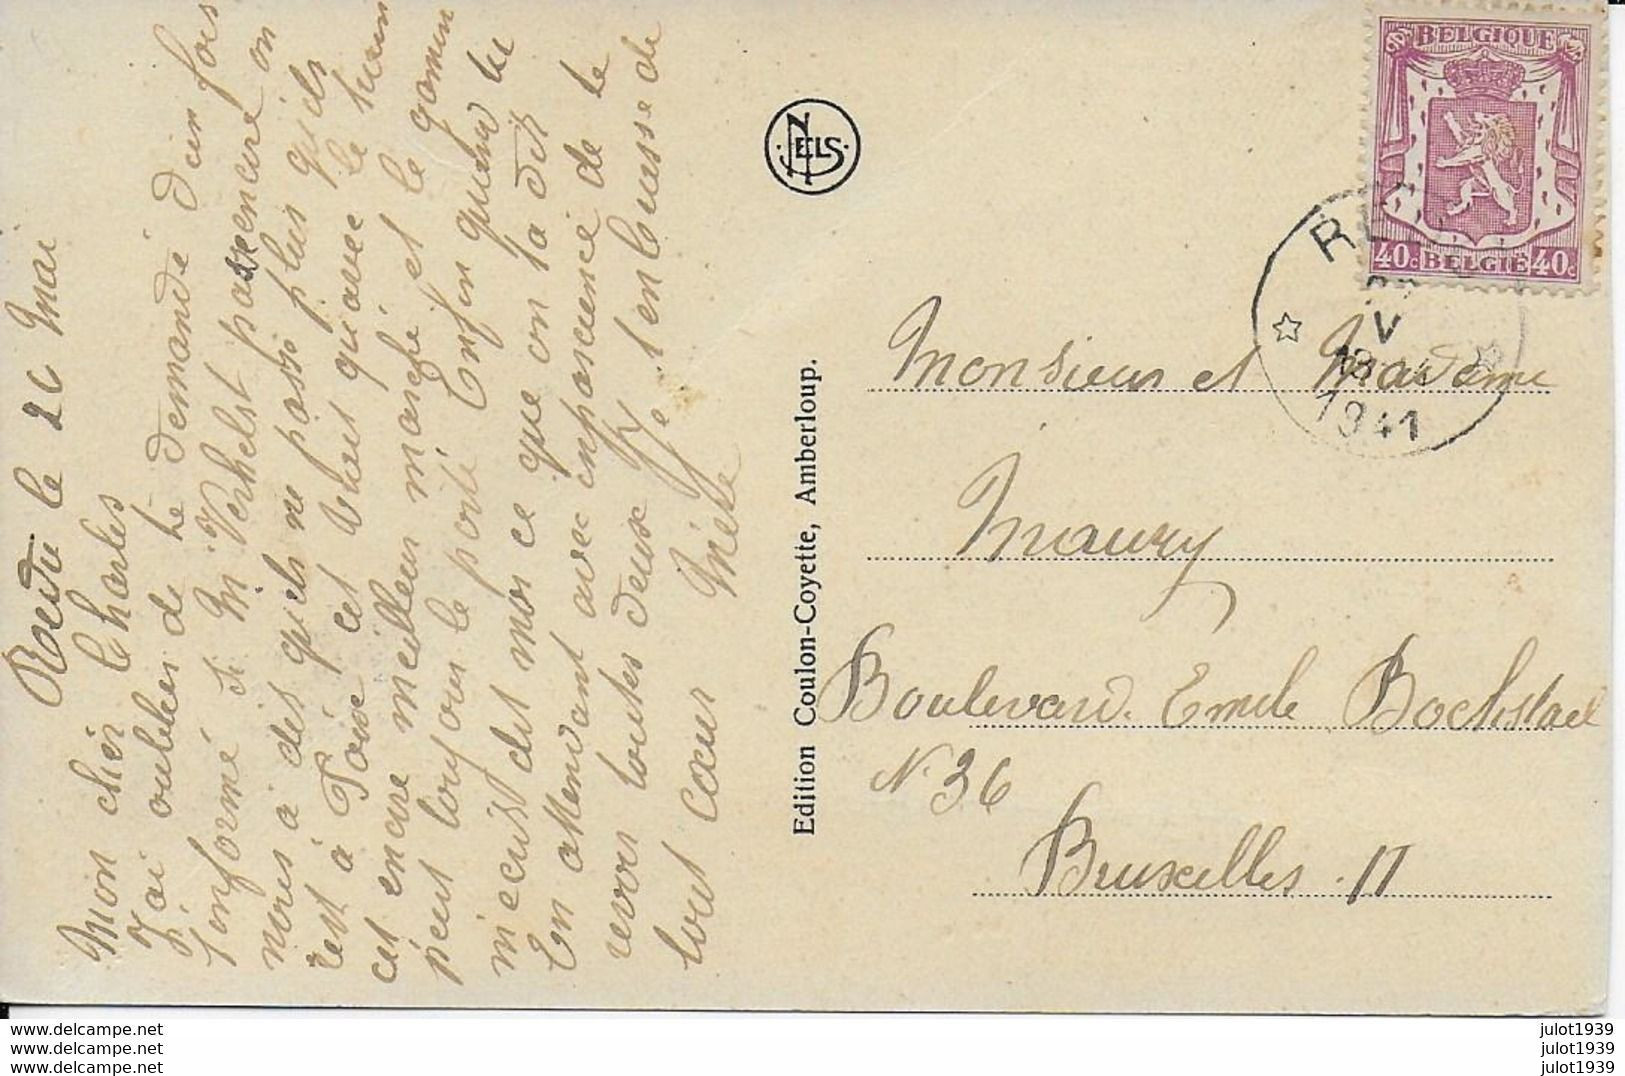 Roedu le 26 Mai
Mon cher Charles
J'ai oublier de te demandé d'un fois
t'informé si M. Verhelst passe encore on
nous a dis qu'els ne passe plus qu'els
rest à Poix cet vrais qu'avec le train
cet encore meilleur marché et le gamin
peut toujours le porté Enfin quand tu
m'ecrit dit moi ce que on ta dit
En attendant avec inpascience de te
revoir toutes deux Je t'enbrasse de
tout cœur Miette
NELS
Edition Coulon-Coyette, Amberloup.
BELGIQUE
40c BELGIE 40c
R
V
1941
Monsieur et Madame
Maury
Boulevard. Emile Bockstael
N. 36
Bruxelles. II
www.delcampe.net
www.delcampe.net
www.delcampe.net
julot1939
julot1939
julot1939